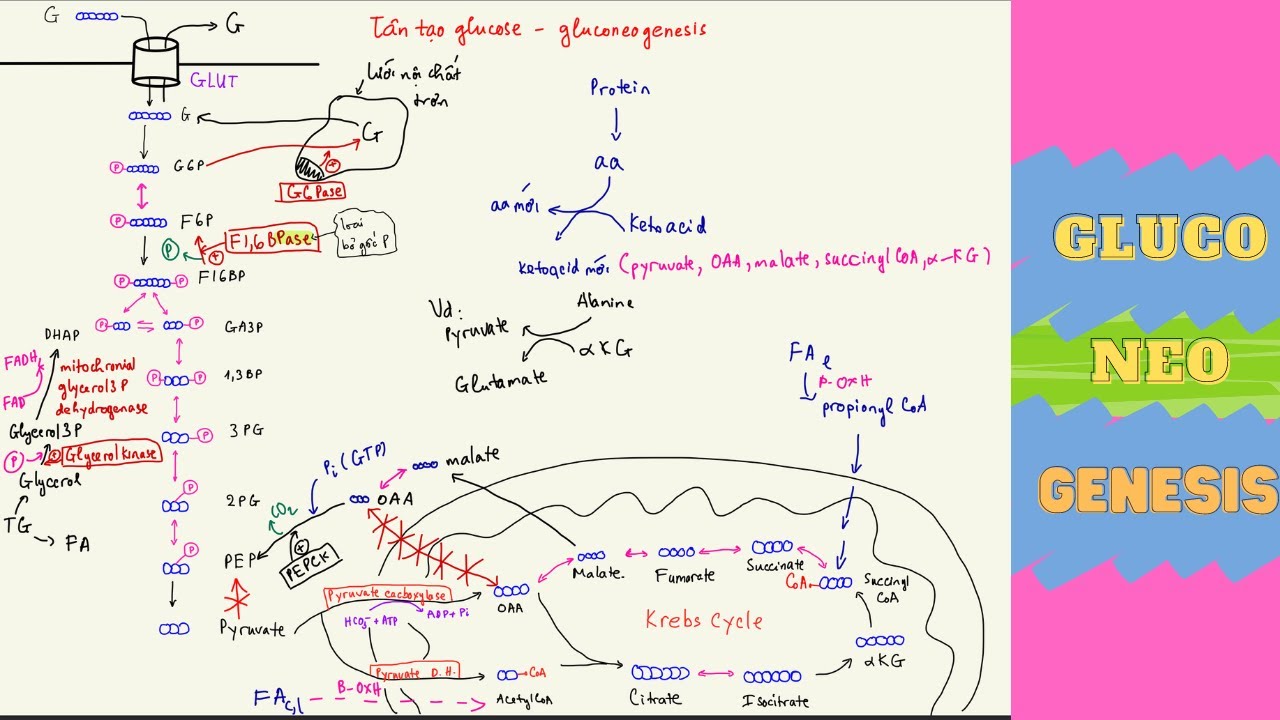 Tân tạo glucose - gluconeogenesis
G
G
GLUT
G
G6P
F6P
F16BP
GA3P
DHAP
1,3BP
3PG
2PG
PEP
Pyruvate
lưới nội chất
trơn
G
G6Pase
F1,6BPase
loại
bỏ gốc P
P
FADH
FAD
mitochronial
glycerol3P
dehydrogenase
Glycerol3P
P
Glycerolkinase
Glycerol
TG
FA
Protein
aa
aa mới
Ketoacid
Ketoacid mới (pyruvate, OAA, malate, succinyl CoA, α-KG)
Vd:
Alanine
pyruvate
αKG
Glutamate
FA
β-OXH
propionyl CoA
Pi (GTP)
CO2
PEPCK
OAA
malate
Pyruvate cacboxylase
HCO3⁻+ATP
ADP+Pi
Pyruvate D.H.
FA
B-OXH
OAA
CoA
AcetylCoA
Malate
Fumarate
Succinate
CoA
Succinyl
CoA
Krebs Cycle
αKG
Citrate
Isocitrate
GLUCO
NEO
GENESIS